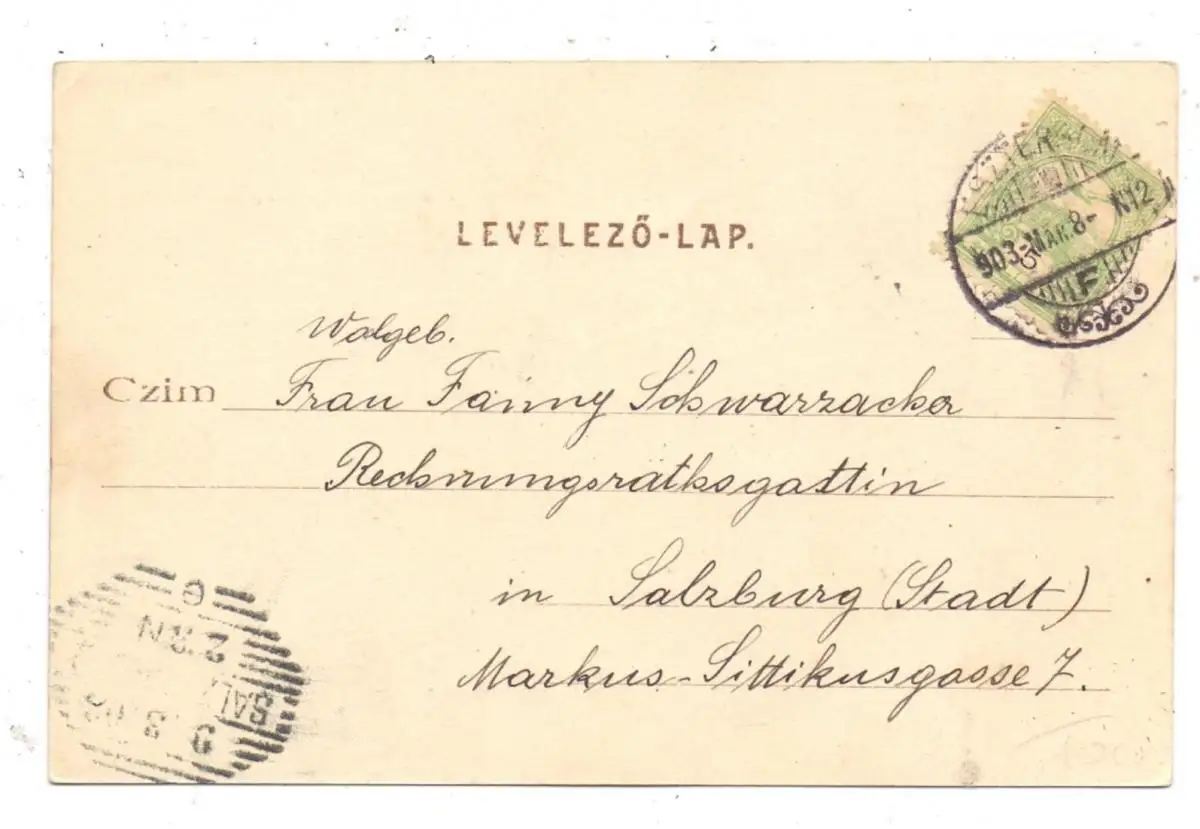 LEVELEZŐ-LAP.
903 MAR. 8- N12
F
Wolgeb.
Czim Frau Fanny Schwarzacker
Rechnungsrathsgattin
in Salzburg (Stadt)
Markus-Sittikusgasse 7.
SAL